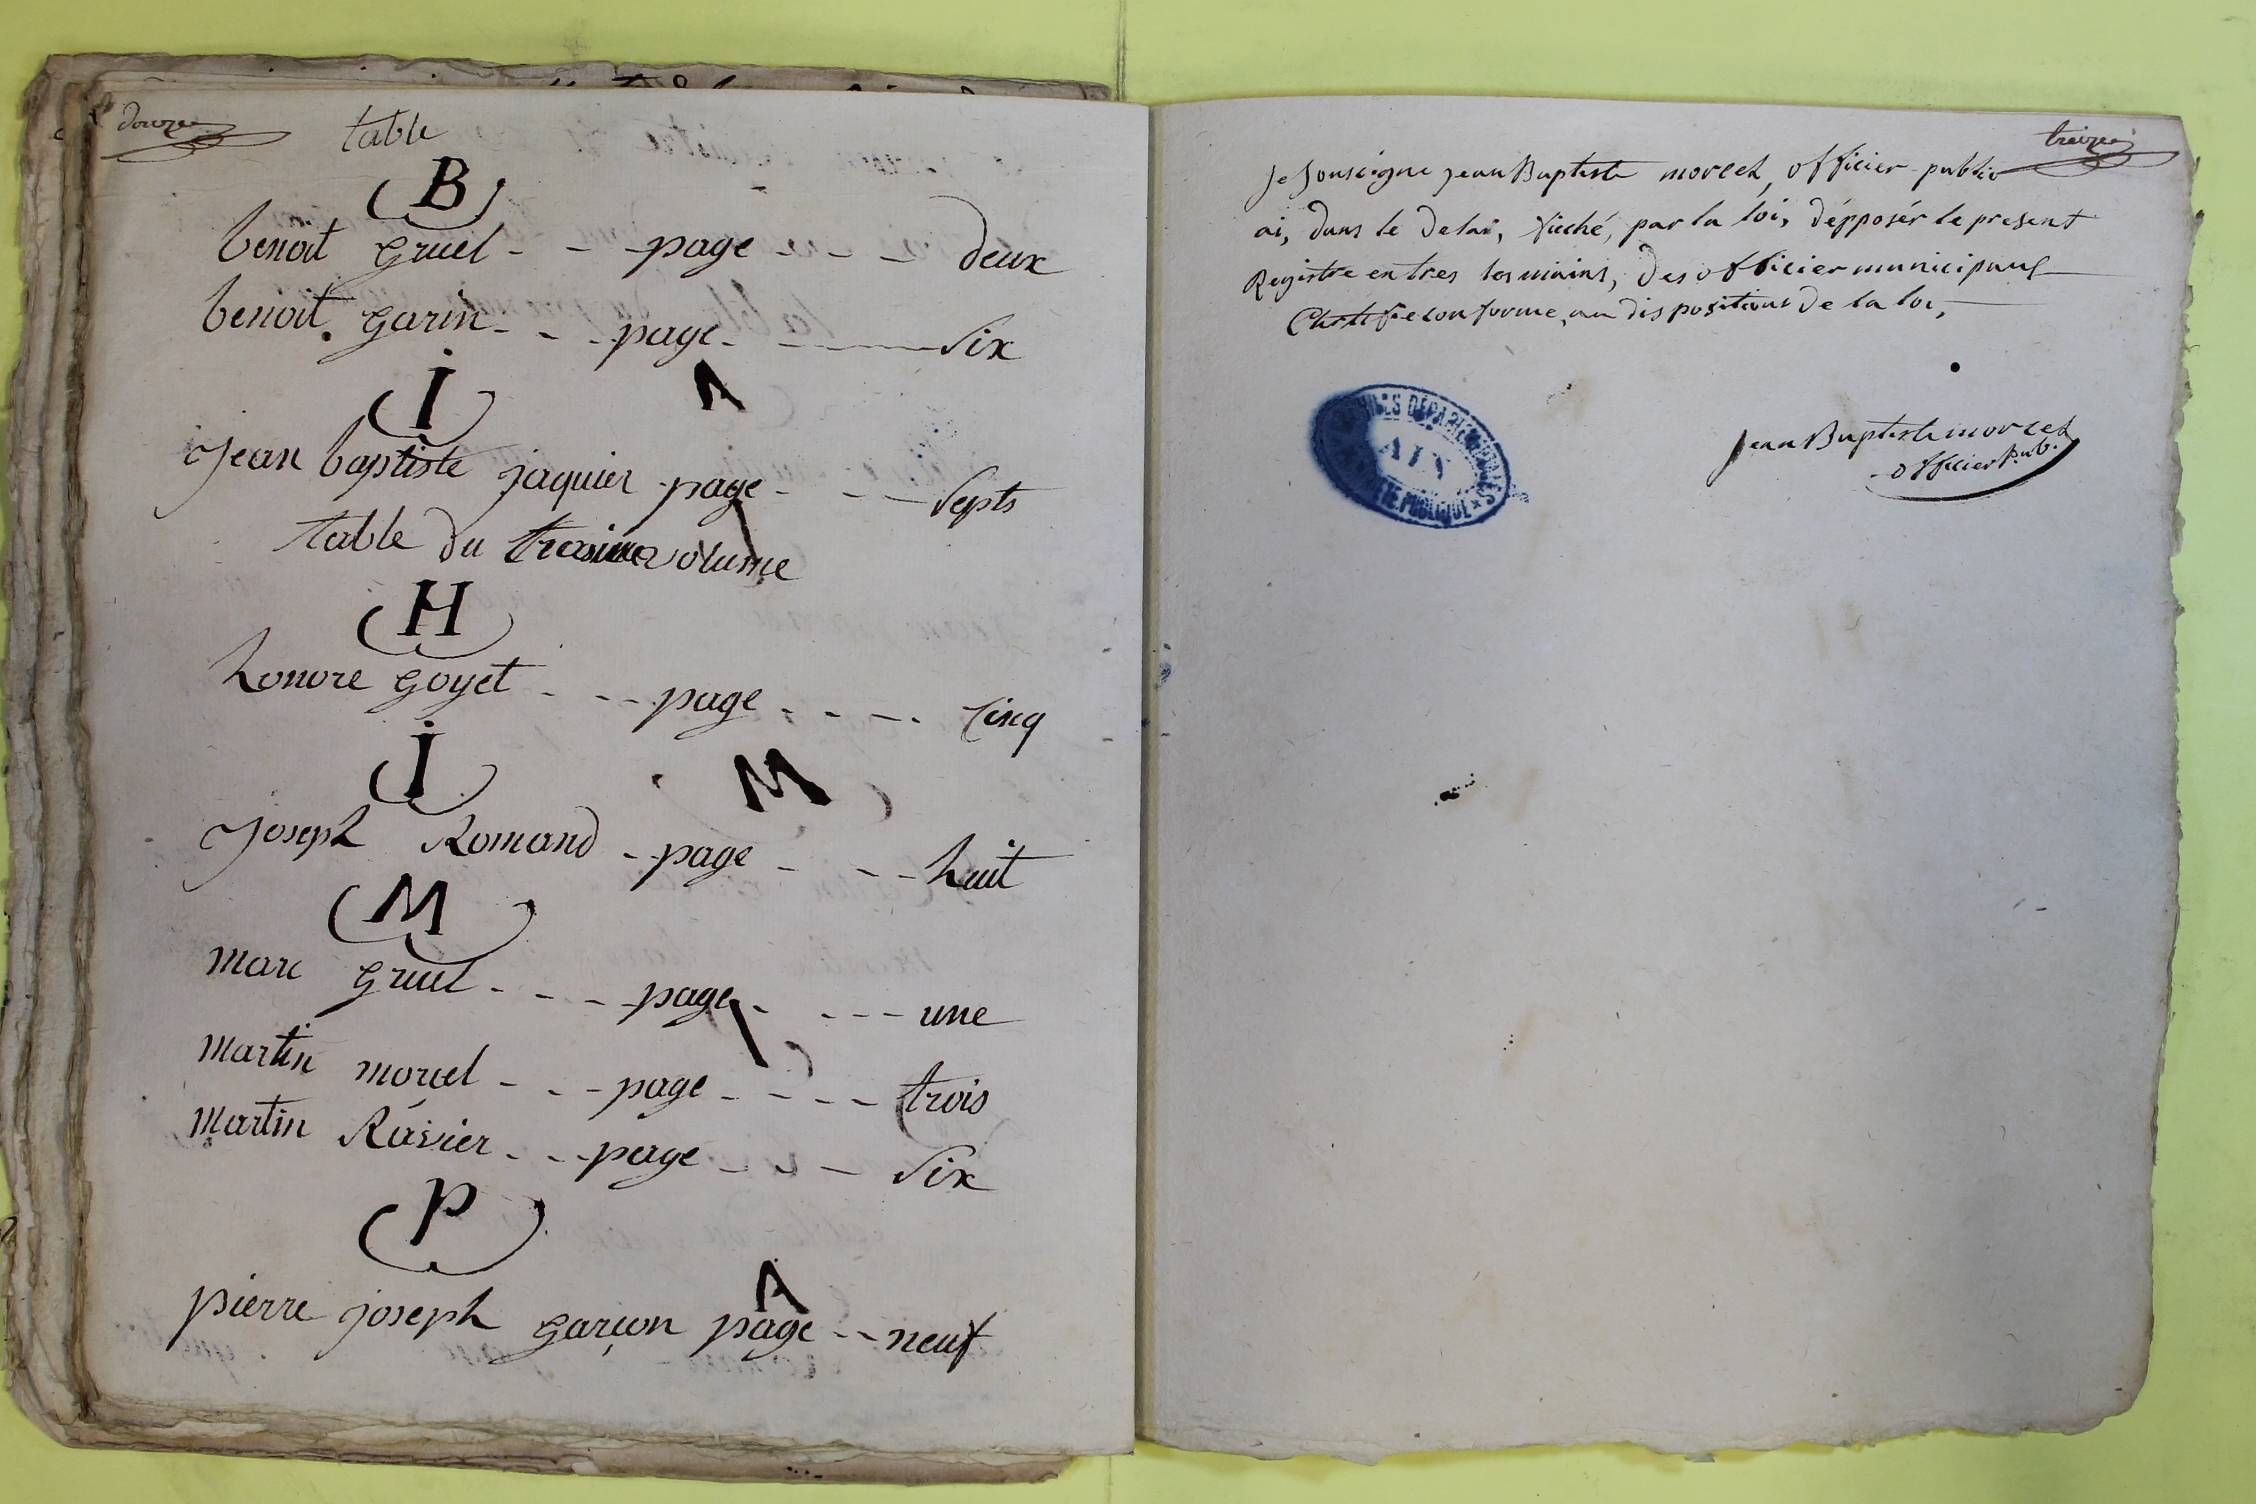 douze
table
B
benoit gruel - - - page - - - deux
benoit garin - - - page - - - Six
I
A
jean baptiste jaquier page - - - Septs
table du volume
H
honore goyet - - - page - - - Cinq
I
M
joseph Romand - page - - - huit
M
marc gruel - - - page - - - une
martin morcel - - - page - - - - trois
martin Ravier - - - page - - - Six
P
A
pierre joseph garçon page - - neuf
treize
Je Sousigne jean Baptiste morcel, officier public
ai, dans le delai, ficché, par la loi, dépposér le present
Registre entres les mains, des officier municipaux
Certifie conforme, au dispositions de la loi,
ARCHIVES DÉPARTEMENTALES
AIN
PROPRIÉTÉ PUBLIQUE
jean Baptiste morcel
officier Pub.